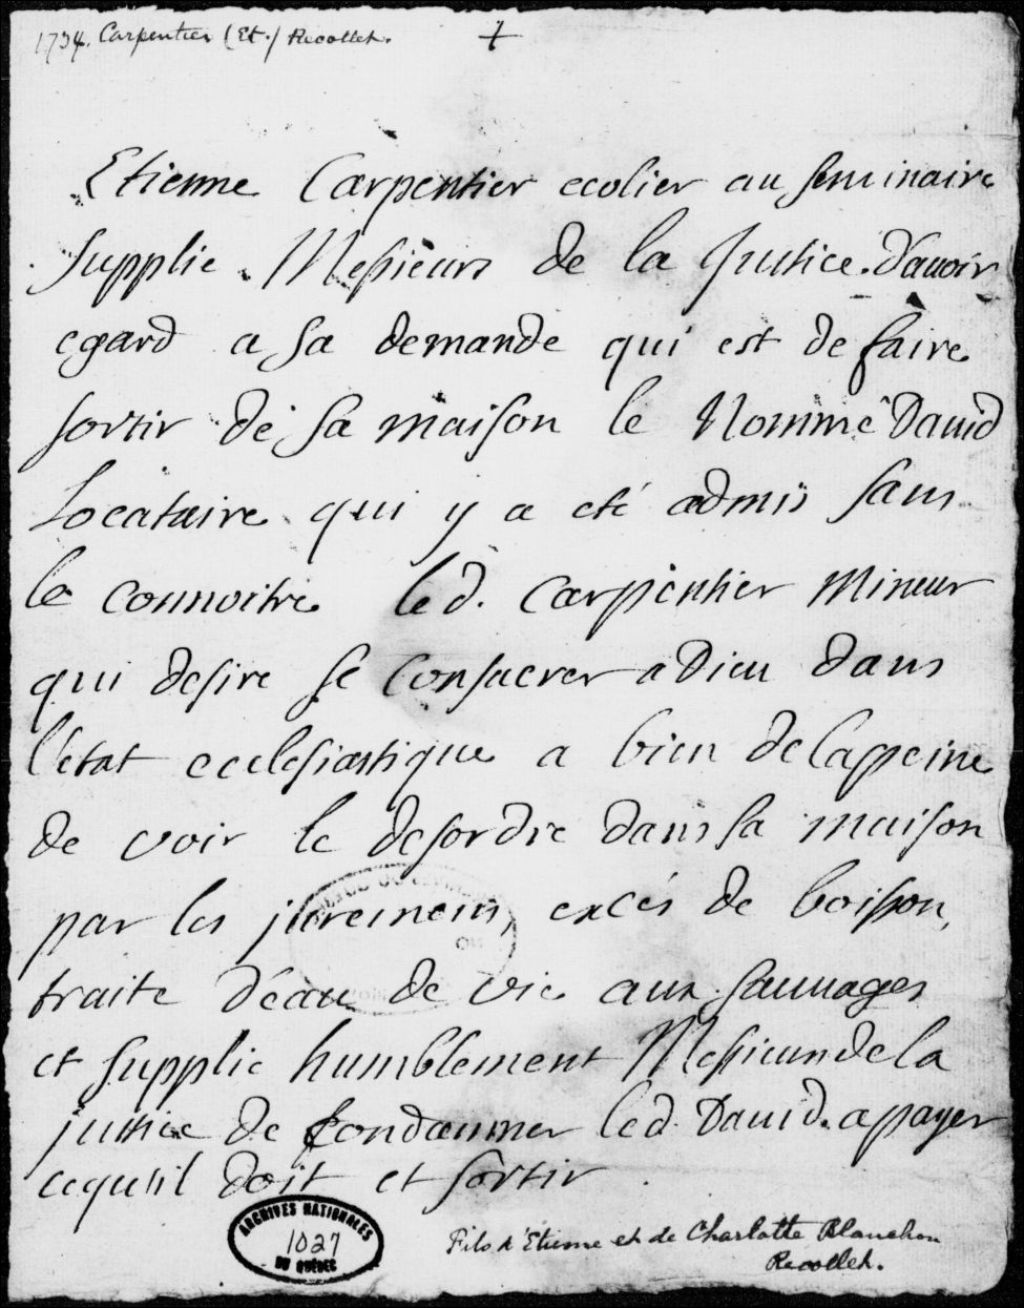 1734. Carpentier (Et.) Recollet.
Etienne Carpentier ecolier au seminaire
supplie Messieurs de la Justice. d'auoir
egard a sa demande qui est de faire
sortir de sa maison le Nommé Dauid
Locataire qui y a eté admis sans
le connoitre led. Carpentier Mineur
qui desire se consacrer a Dieu dans
l'état ecclesiastique a bien de la peine
de voir le desordre dans sa maison
par les juremens, excés de boisson,
traite d'eau de vie aux sauuages
et supplie humblement Messieurs de la
justice de condamner led. Dauid. a payer
cequ'il doit et sortir
ARCHIVES NATIONALES
1027
DU QUÉBEC
Fils d'Etienne et de Charlotte Blanchon
Recollet.